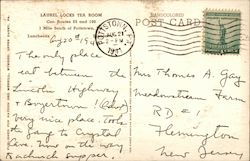 LAUREL LOCKS TEA ROOM
Cor. Routes 83 and 100
1 Mile South of Pottstown,
Luncheons
HANDCOLORED
POST CARD
POTTSTOWN, PA.
AUG 21
1941
The only place to
eat between the
Lincoln Highway
+ Boyertown!
very nice place. Took
the gang to Crystal
Cave. Now on the way
to supper.
Mrs Thomas A. Gay
Meadowstream Farm
RD #1
Flemington
New Jersey